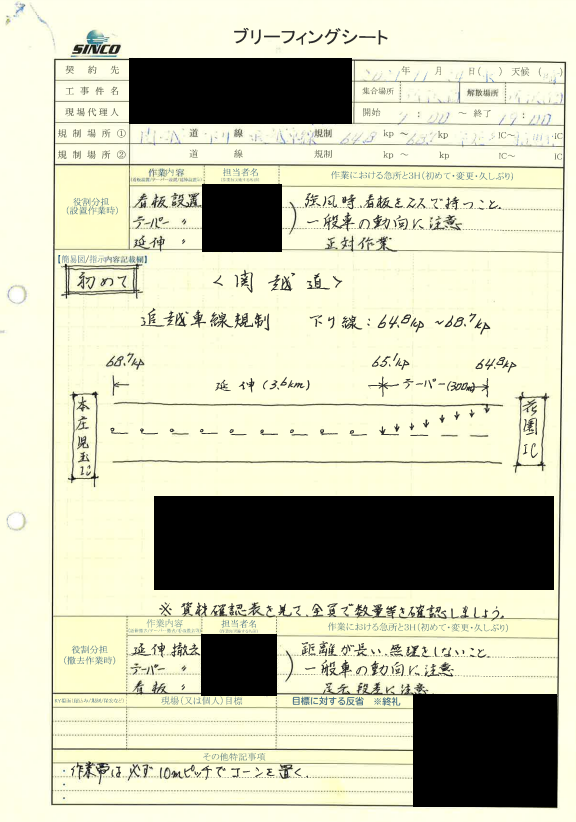 SINCO
ブリーフィングシート
契約先 年 月 日( ) 天候( )
工事件名 集合場所 解散場所
現場代理人 開始 ～ 終了 19:00
規制場所① 道 線 規制 64.8 kp ～ 68.7 kp IC～ IC
規制場所② 道 線 規制 kp ～ kp IC～ IC
役割分担(設置作業時) 作業内容 担当者名 作業における急所と3H(初めて・変更・久しぶり)
看板設置 強風時、看板を2人で持つこと。
テーパー 〃 一般車の動向に注意
延伸 〃 正対作業
【簡易図/指示内容記載欄】
初めて
＜関越道＞
追越車線規制 下り線：64.8kp ～68.7kp
68.7kp 65.1kp 64.8kp
延伸(3.6km) テーパー(300m)
本庄児玉IC 花園IC
※ 資料確認表を見て、全員で数量等を確認しましょう。
役割分担(撤去作業時) 作業内容 担当者名 作業における急所と3H(初めて・変更・久しぶり)
延伸撤去 距離が長い、無理をしないこと
テーパー 〃 一般車の動向に注意
看板 〃 段差に注意
現場(又は個人)目標 目標に対する反省 ※終礼
その他特記事項
・作業帯は必ず10mピッチでコーンを置く.